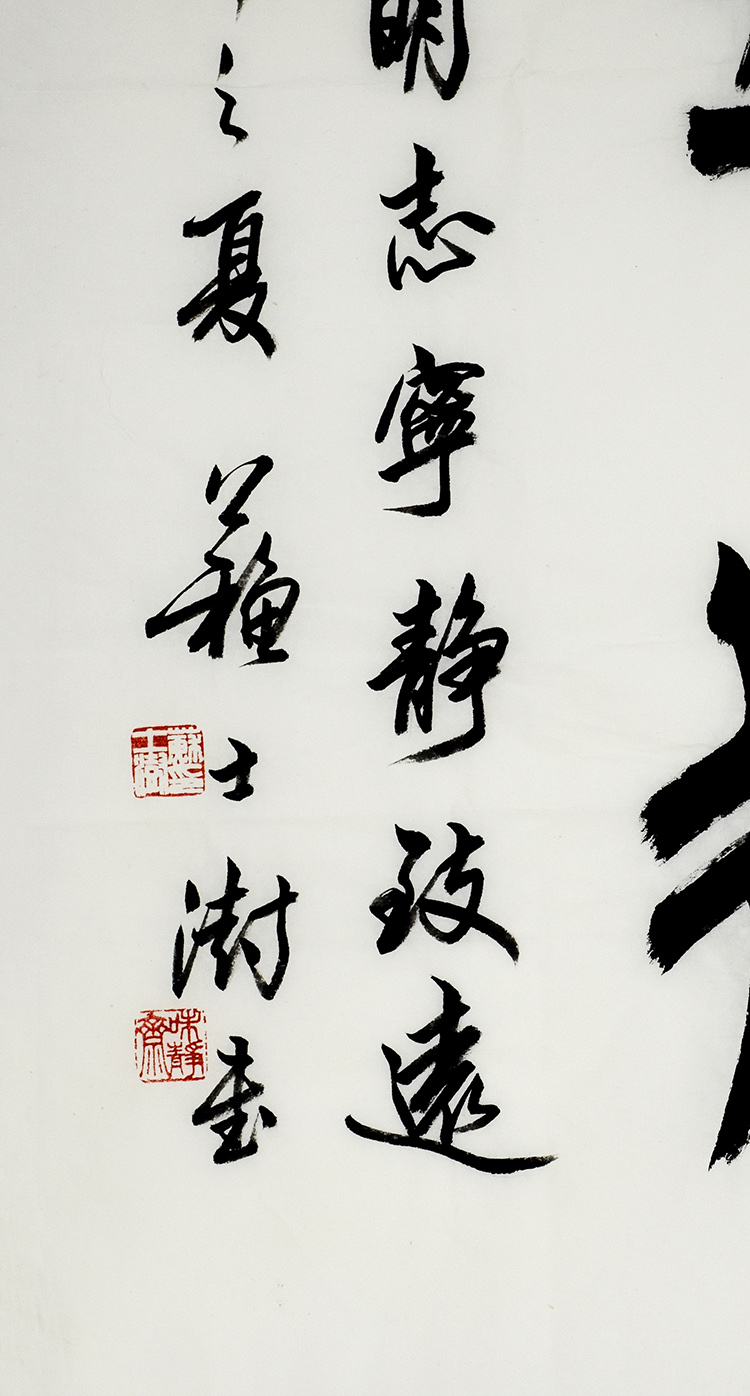 明志寧静致遠
之夏 蘇士澍書
蘇印士澍
味靜齋